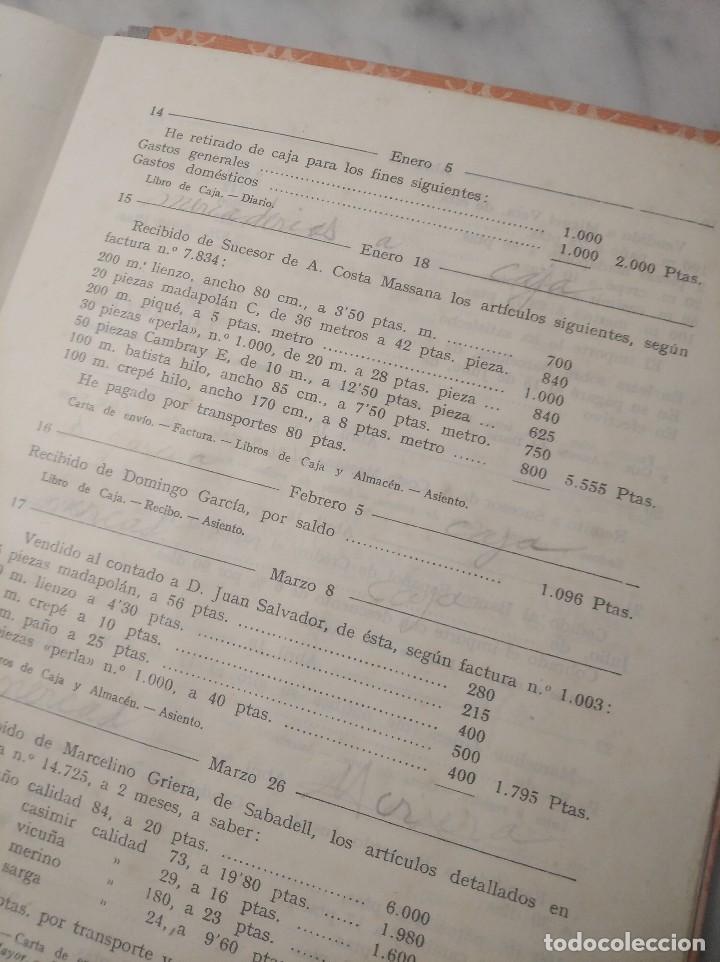 14 Enero 5
He retirado de caja para los fines siguientes:
Gastos generales ........ 1.000
Gastos domésticos ........ 1.000 2.000 Ptas.
Libro de Caja. — Diario.
mercaderias a caja
15 Enero 18
Recibido de Sucesor de A. Costa Massana los artículos siguientes, según
factura n.º 7.834:
200 m. lienzo, ancho 80 cm., a 3'50 ptas. m. ........ 700
20 piezas madapolán C, de 36 metros a 42 ptas. pieza. 840
200 m. piqué, a 5 ptas. metro ........ 1.000
30 piezas «perla», n.º 1.000, de 20 m. a 28 ptas. pieza ... 840
50 piezas Cambray E, de 10 m., a 12'50 ptas. pieza ... 625
100 m. batista hilo, ancho 85 cm., a 7'50 ptas. metro. 750
100 m. crepé hilo, ancho 170 cm., a 8 ptas. metro ...... 800 5.555 Ptas.
He pagado por transportes 80 ptas.
Carta de envío. — Factura. — Libros de Caja y Almacén. — Asiento.
16 Febrero 5
caja
Recibido de Domingo García, por saldo ........ 1.096 Ptas.
Libro de Caja. — Recibo. — Asiento.
17 Marzo 8
Vendido al contado a D. Juan Salvador, de ésta, según factura n.º 1.003:
piezas madapolán, a 56 ptas. ........ 280
m. lienzo a 4'30 ptas. ........ 215
m. crepé a 10 ptas. ........ 400
m. paño a 25 ptas. ........ 500
piezas «perla» n.º 1.000, a 40 ptas. ........ 400 1.795 Ptas.
ros de Caja y Almacén. — Asiento.
Marzo 26
bido de Marcelino Griera, de Sabadell, los artículos detallados en
a n.º 14.725, a 2 meses, a saber:
ño calidad 84, a 20 ptas. ........ 6.000
casimir calidad 73, a 19'80 ptas. ........ 1.980
vicuña » 29, a 16 ptas. ........ 1.600
merino » 180, a 23 ptas.
sarga » 24, a 9'60 ptas.
ptas. por transporte y
— Carta de
Mayor
todocoleccion
todocoleccion.net